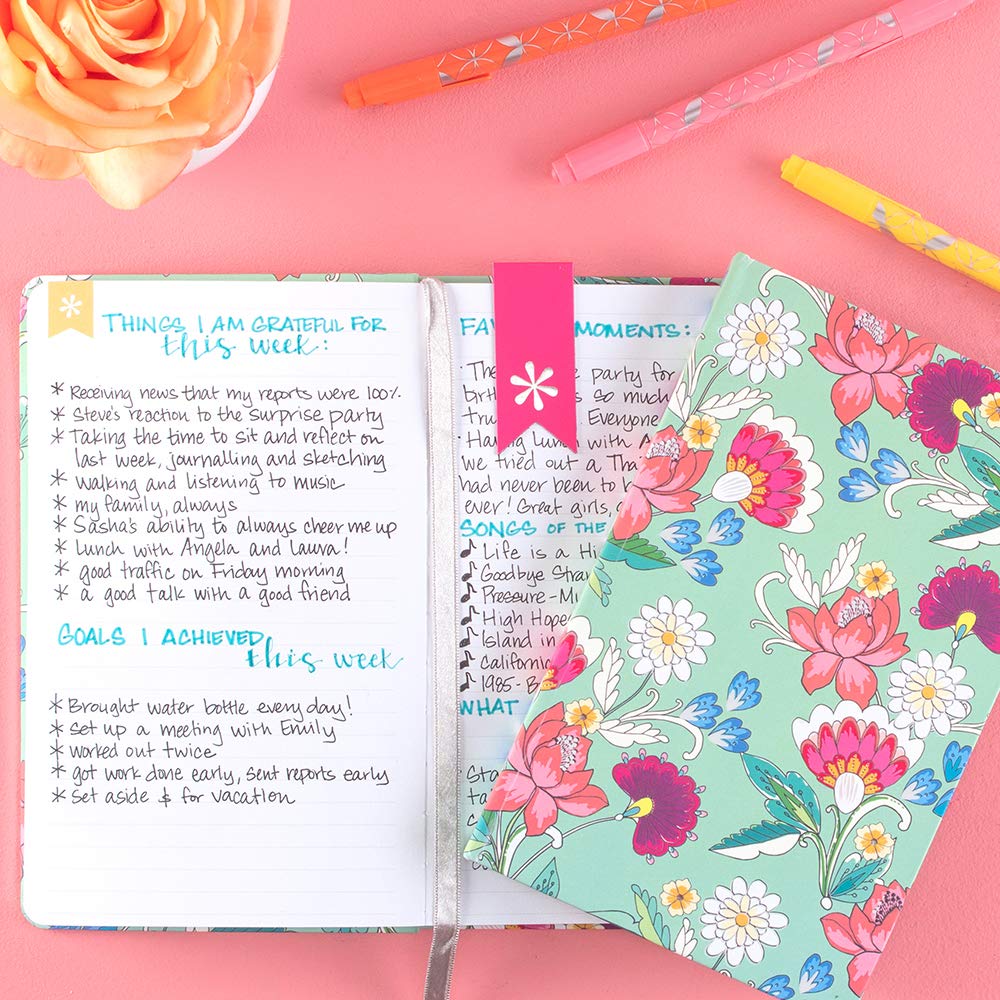 THINGS I AM GRATEFUL FOR
this week:
* Receiving news that my reports were 100%
* Steve's reaction to the surprise party
* Taking the time to sit and reflect on
last week, journalling and sketching
* Walking and listening to music
* my family, always
* Sasha's ability to always cheer me up
* Lunch with Angela and Laura!
* good traffic on Friday morning
* a good talk with a good friend
GOALS I ACHIEVED
this week
* Brought water bottle every day!
* Set up a meeting with Emily
* worked out twice
* got work done early, sent reports early
* Set aside $ for vacation
MOMENTS:
party for
so much
Everyone
Having lunch with
we tried out a
had never been to
ever! Great girls,
SONGS OF THE
♪ Life is a
♪ Goodbye
♪ Pressure -
♪ High
♪ Island in
♪
♪ 1985 -
WHAT